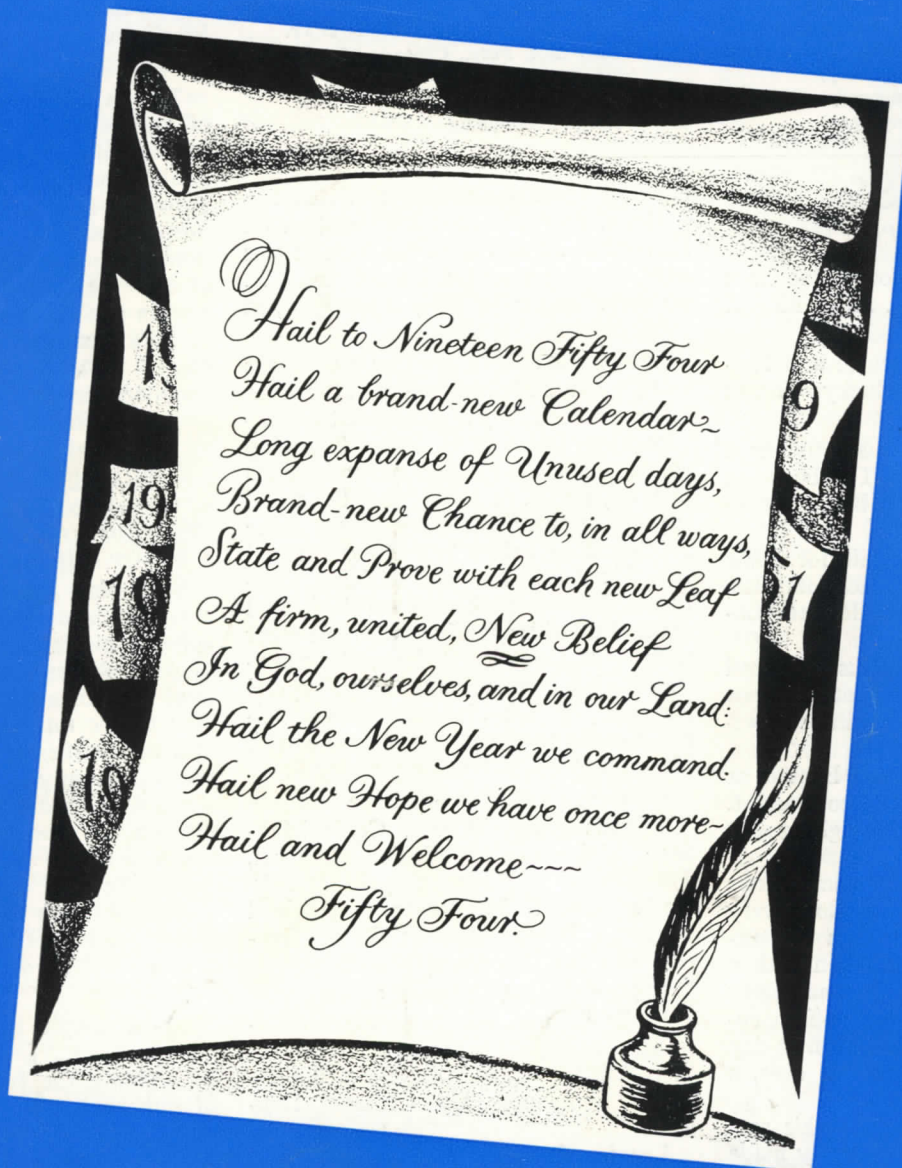 Hail to Nineteen Fifty Four
Hail a brand-new Calendar~
Long expanse of Unused days,
Brand-new Chance to, in all ways,
State and Prove with each new Leaf
A firm, united, New Belief
In God, ourselves, and in our Land:
Hail the New Year we command.
Hail new Hope we have once more~
Hail and Welcome~~~
Fifty Four.
19
9
19
19
51
19